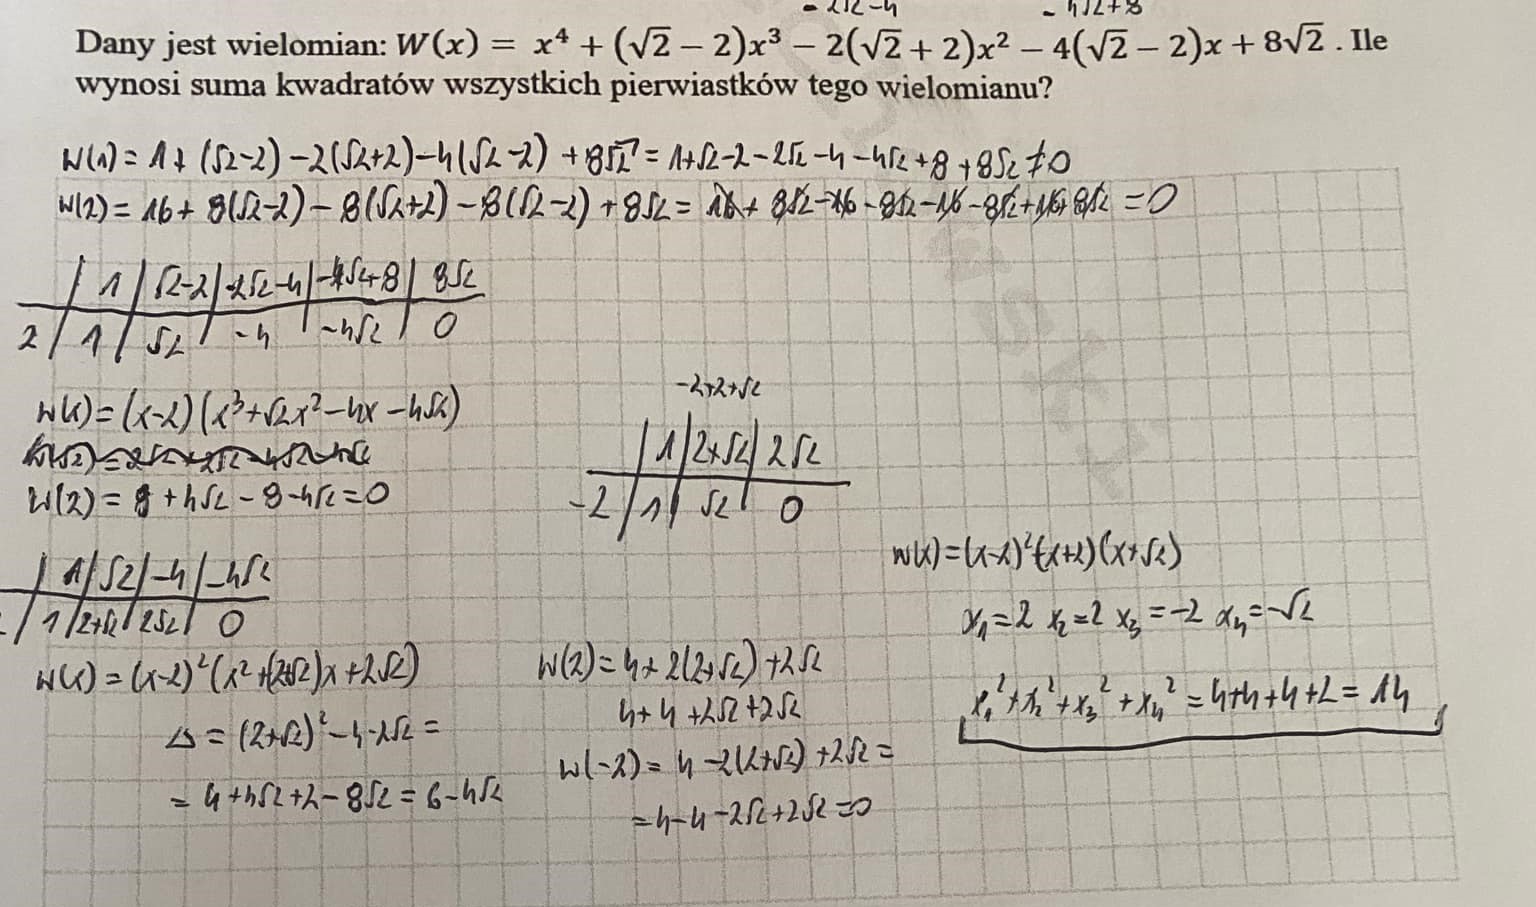 - 2√2-4 - 4√2+8
Dany jest wielomian: W(x) = x⁴ + (√2 − 2)x³ − 2(√2 + 2)x² − 4(√2 − 2)x + 8√2 . Ile
wynosi suma kwadratów wszystkich pierwiastków tego wielomianu?
W(1) = 1 + (√2-2) -2(√2+2) -4(√2-2) + 8√2 = 1+√2-2-2√2-4-4√2+8+8√2 ≠ 0
W(2) = 16 + 8(√2-2) - 8(√2+2) - 8(√2-2) + 8√2 = 16 + 8√2-16-8√2-16-8√2+16+8√2 = 0
| 1 | √2-2 | -2√2-4 | -4√2+8 | 8√2
2 | 1 | √2 | -4 | -4√2 | 0
W(x) = (x-2)(x³+√2x²-4x-4√2)
W(2) = 8 + 4√2 - 8 - 4√2 = 0
| 1 | √2 | -4 | -4√2
| 1 | 2+√2 | 2√2 | 0
W(x) = (x-2)²(x²+(2+√2)x+2√2)
Δ = (2+√2)² - 4·2√2 =
= 4+4√2+2-8√2 = 6-4√2
-2+2+√2
| 1 | 2+√2 | 2√2
-2 | 1 | √2 | 0
W(2) = 4+2(2+√2)+2√2
4+4+2√2+2√2
W(-2) = 4-2(2+√2)+2√2 =
= 4-4-2√2+2√2 = 0
W(x) = (x-2)²(x+2)(x+√2)
x₁=2 x₂=2 x₃=-2 x₄=-√2
x₁²+x₂²+x₃²+x₄² = 4+4+4+2 = 14